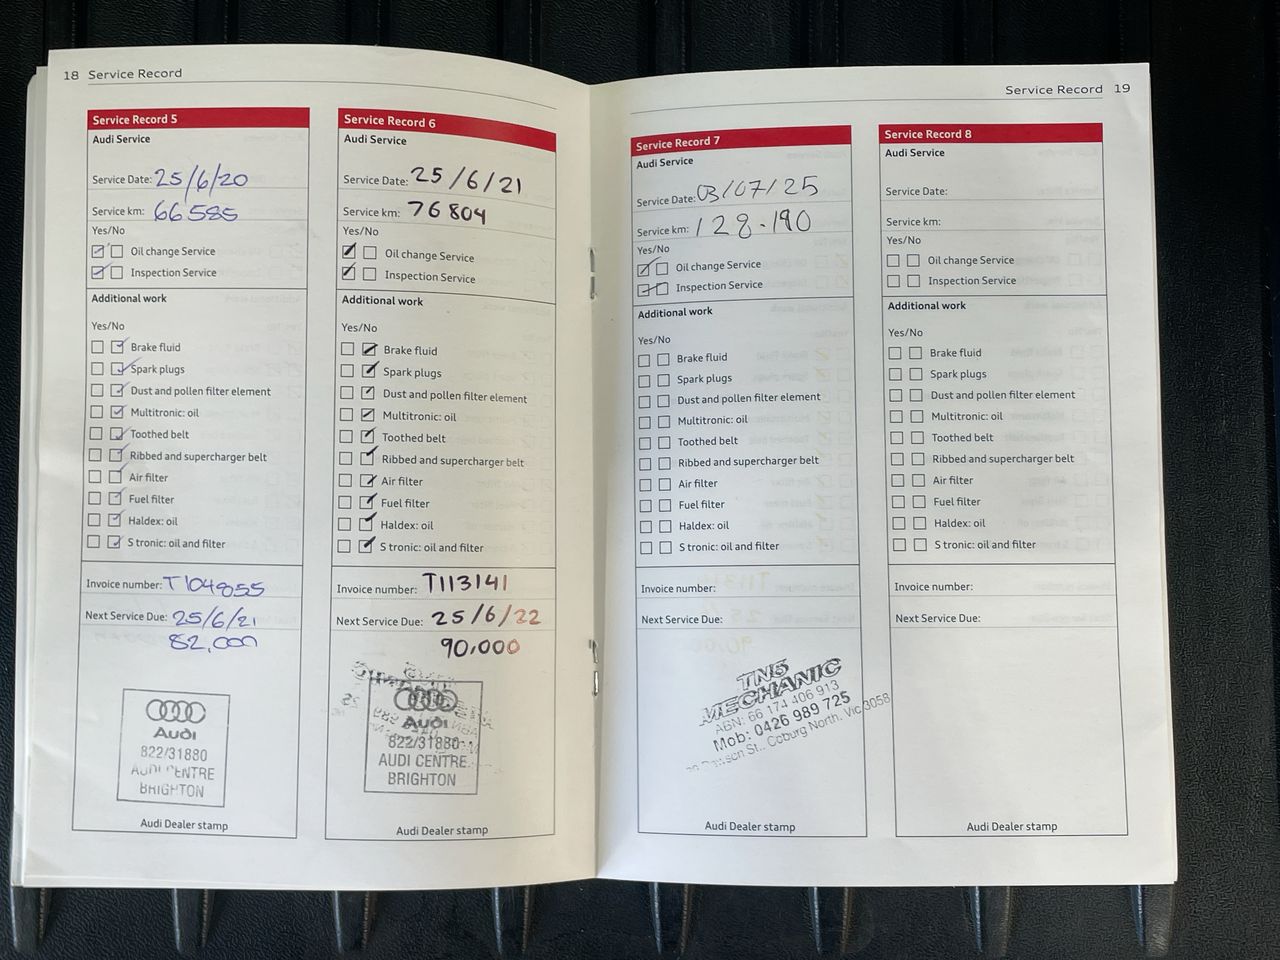 18 Service Record
Service Record 5
Audi Service
Service Date: 25/6/20
Service km: 66585
Yes/No
Oil change Service
Inspection Service
Additional work
Yes/No
Brake fluid
Spark plugs
Dust and pollen filter element
Multitronic: oil
Toothed belt
Ribbed and supercharger belt
Air filter
Fuel filter
Haldex: oil
S tronic: oil and filter
Invoice number: T104855
Next Service Due: 25/6/21
82,000
Audi
822/31880
AUDI CENTRE
BRIGHTON
Audi Dealer stamp
Service Record 6
Audi Service
Service Date: 25/6/21
Service km: 76804
Yes/No
Oil change Service
Inspection Service
Additional work
Yes/No
Brake fluid
Spark plugs
Dust and pollen filter element
Multitronic: oil
Toothed belt
Ribbed and supercharger belt
Air filter
Fuel filter
Haldex: oil
S tronic: oil and filter
Invoice number: T113141
Next Service Due: 25/6/22
90,000
Audi
822/31880
AUDI CENTRE
BRIGHTON
Audi Dealer stamp
Service Record 19
Service Record 7
Audi Service
Service Date: 03/07/25
Service km: 128-190
Yes/No
Oil change Service
Inspection Service
Additional work
Yes/No
Brake fluid
Spark plugs
Dust and pollen filter element
Multitronic: oil
Toothed belt
Ribbed and supercharger belt
Air filter
Fuel filter
Haldex: oil
S tronic: oil and filter
Invoice number:
Next Service Due:
TN5
MECHANIC
ABN: 66 174 406 913
Mob: 0426 989 725
Dawson St., Coburg North, Vic 3058
Audi Dealer stamp
Service Record 8
Audi Service
Service Date:
Service km:
Yes/No
Oil change Service
Inspection Service
Additional work
Yes/No
Brake fluid
Spark plugs
Dust and pollen filter element
Multitronic: oil
Toothed belt
Ribbed and supercharger belt
Air filter
Fuel filter
Haldex: oil
S tronic: oil and filter
Invoice number:
Next Service Due:
Audi Dealer stamp